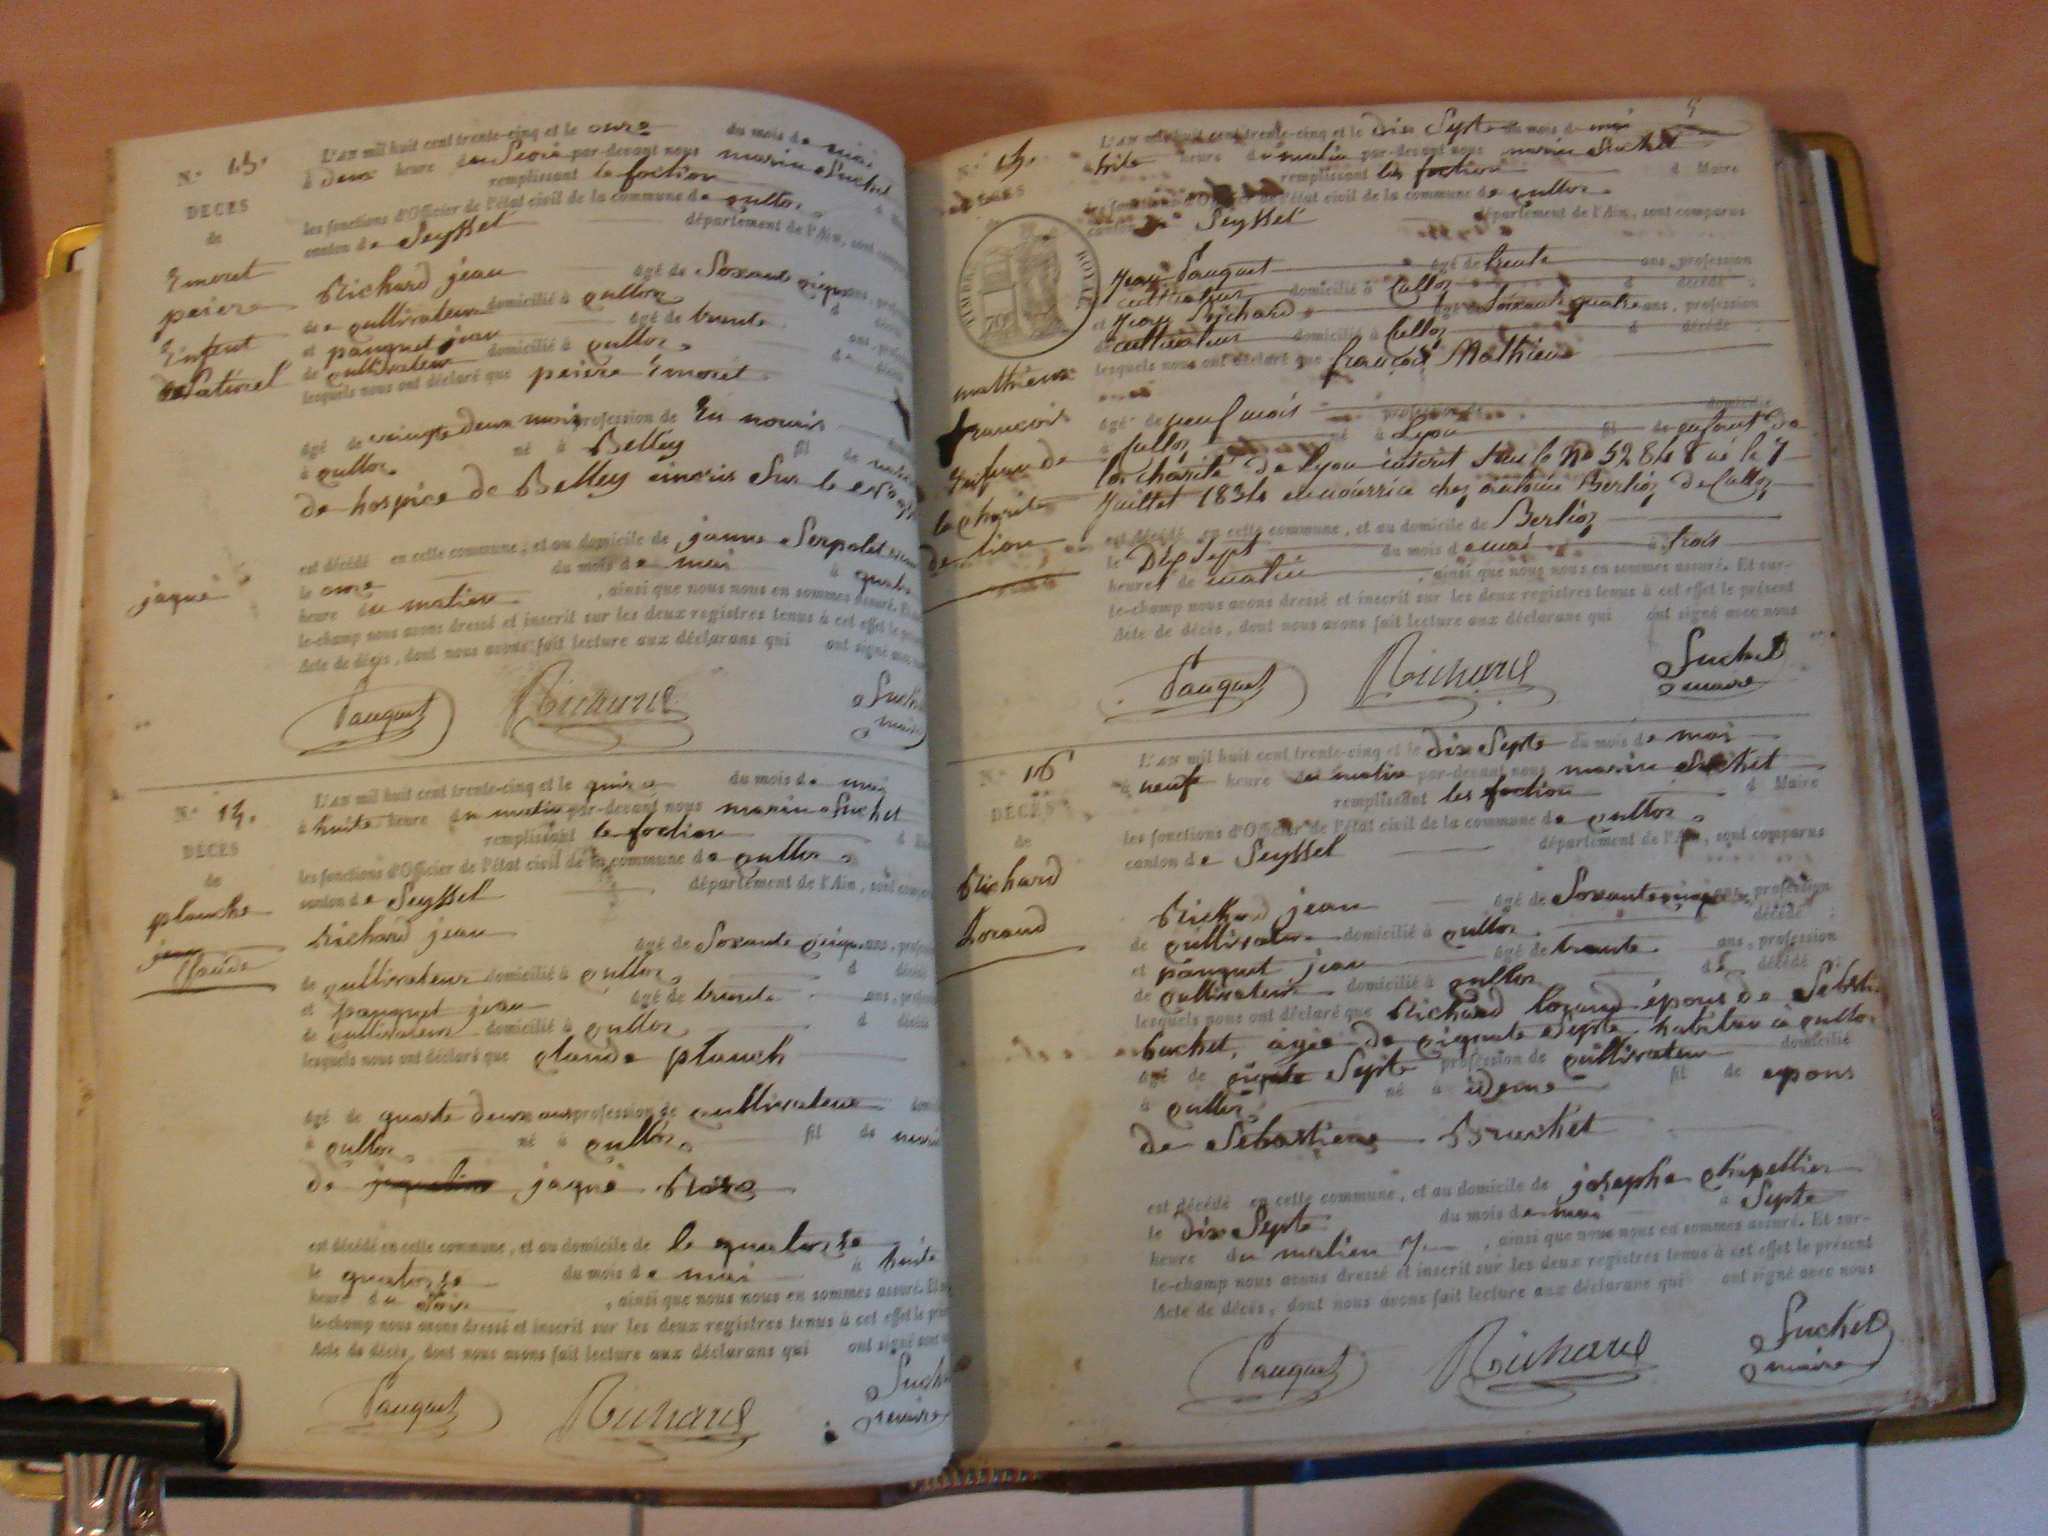 N.° 13.
DECES
de
Emoret
peiere
Enfent
Naturel
jaque
L'AN mil huit cent trente-cinq et le onze du mois de mai
à deux heure du Soir par-devant nous marin Suchet
remplissant le foction
les fonctions d'Officier de l'état civil de la commune de culloz
canton de Seyssel département de l'Ain, sont
Richard jean âgé de Soxante cinq ans,
de cultivateur domicilié à culloz
et pauquet jean âgé de trente ans,
de cultivateur domicilié à culloz
lesquels nous ont déclaré que peiere Emoret
âgé de vingte deux mois profession de En nouris
à culloz né à Belley fil de
de hospice de Belley einscris Sur le No
est décédé en cette commune, et au domicile de janne Serpolet
le onze du mois de mai à
heure du matien , ainsi que nous nous en sommes assuré. Et
le-champ nous avons dressé et inscrit sur les deux registres tenus à cet effet le
Acte de décès, dont nous avons fait lecture aux déclarans qui ont signé avec
Pauquet Richard Suchet
maire
N.° 14.
DECES
de
planche
jean
Claude
L'AN mil huit cent trente-cinq et le quinze du mois de mai
à huite heure du matin par-devant nous marin Suchet
remplissant le foction
les fonctions d'Officier de l'état civil de la commune de culloz
canton de Seyssel département de l'Ain, sont
Richard jean
âgé de Soxante cinq ans,
de cultivateur domicilié à culloz d décédé
et pauquet jean âgé de trente ans,
de cultivateur domicilié à culloz d décédé
lesquels nous ont déclaré que claude planch
âgé de quarte deux ans profession de cultivateur
à culloz né à culloz fil de
de jaque Roze
est décédé en cette commune, et au domicile de le quatorze
le quatorze du mois de mai à huite
heure du Soir , ainsi que nous nous en sommes assuré. Et
le-champ nous avons dressé et inscrit sur les deux registres tenus à cet effet le
Acte de décès, dont nous avons fait lecture aux déclarans qui ont signé avec
Pauquet Richard Suchet
maire
5
N.° 15.
DECES
de
TIMBRE ROYAL
70
mathieux
françois
Enfan de
la charite
de lion
L'AN mil huit cent trente-cinq et le dix Septe du mois de mai
à huite heure du matin par-devant nous marin Suchet
remplissant les foction d Maire
les fonctions d'Officier de l'état civil de la commune de culloz
canton de Seyssel département de l'Ain, sont comparus
Jean Pauquet âgé de trente ans, profession
cultivateur domicilié à Culloz d décédé ;
et Jean Richard âgé de Soixante quatre ans, profession
de cultivateur domicilié à Culloz d décédé :
lesquels nous ont déclaré que françois Mathieu
âgé de neuf mois profession de domicilié
à Culloz né à Lyon fil de enfant de
la charité de Lyon inscrit sous le no 52848 né le 7
Juillet 1834 en nourrice chez antoine Berlioz de Culloz
est décédé en cette commune, et au domicile de Berlioz
le Dix Sept du mois de mai à trois
heures du matin , ainsi que nous nous en sommes assuré. Et sur-
le-champ nous avons dressé et inscrit sur les deux registres tenus à cet effet le présent
Acte de décès, dont nous avons fait lecture aux déclarans qui ont signé avec nous
Pauquet Richard Suchet
maire
N.° 16
DECES
de
Richard
Lorand
L'AN mil huit cent trente-cinq et le dix Septe du mois de mai
à neuf heure du matin par-devant nous marin Suchet
remplissant les foction d Maire
les fonctions d'Officier de l'état civil de la commune de culloz
canton de Seyssel département de l'Ain, sont comparus
Richard jean âgé de Soxante cinq ans, profession
de cultivateur domicilié à culloz décédé ;
et pauquet jean âgé de trente ans, profession
de cultivateur domicilié à culloz d décédé :
lesquels nous ont déclaré que Richard lorand épous de
buchet, agée de ciqante Septe habitan à cullo
âgé de Septe profession de cultivateur domicilié
à culloz né à ideme fil de epous
de Sébastiene Bruchet
est décédé en cette commune, et au domicile de josephe chapellier
le dix Septe du mois de mai à Septe
heure du matien 7 , ainsi que nous nous en sommes assuré. Et sur-
le-champ nous avons dressé et inscrit sur les deux registres tenus à cet effet le présent
Acte de décès, dont nous avons fait lecture aux déclarans qui ont signé avec nous
Pauquet Richard Suchet
maire